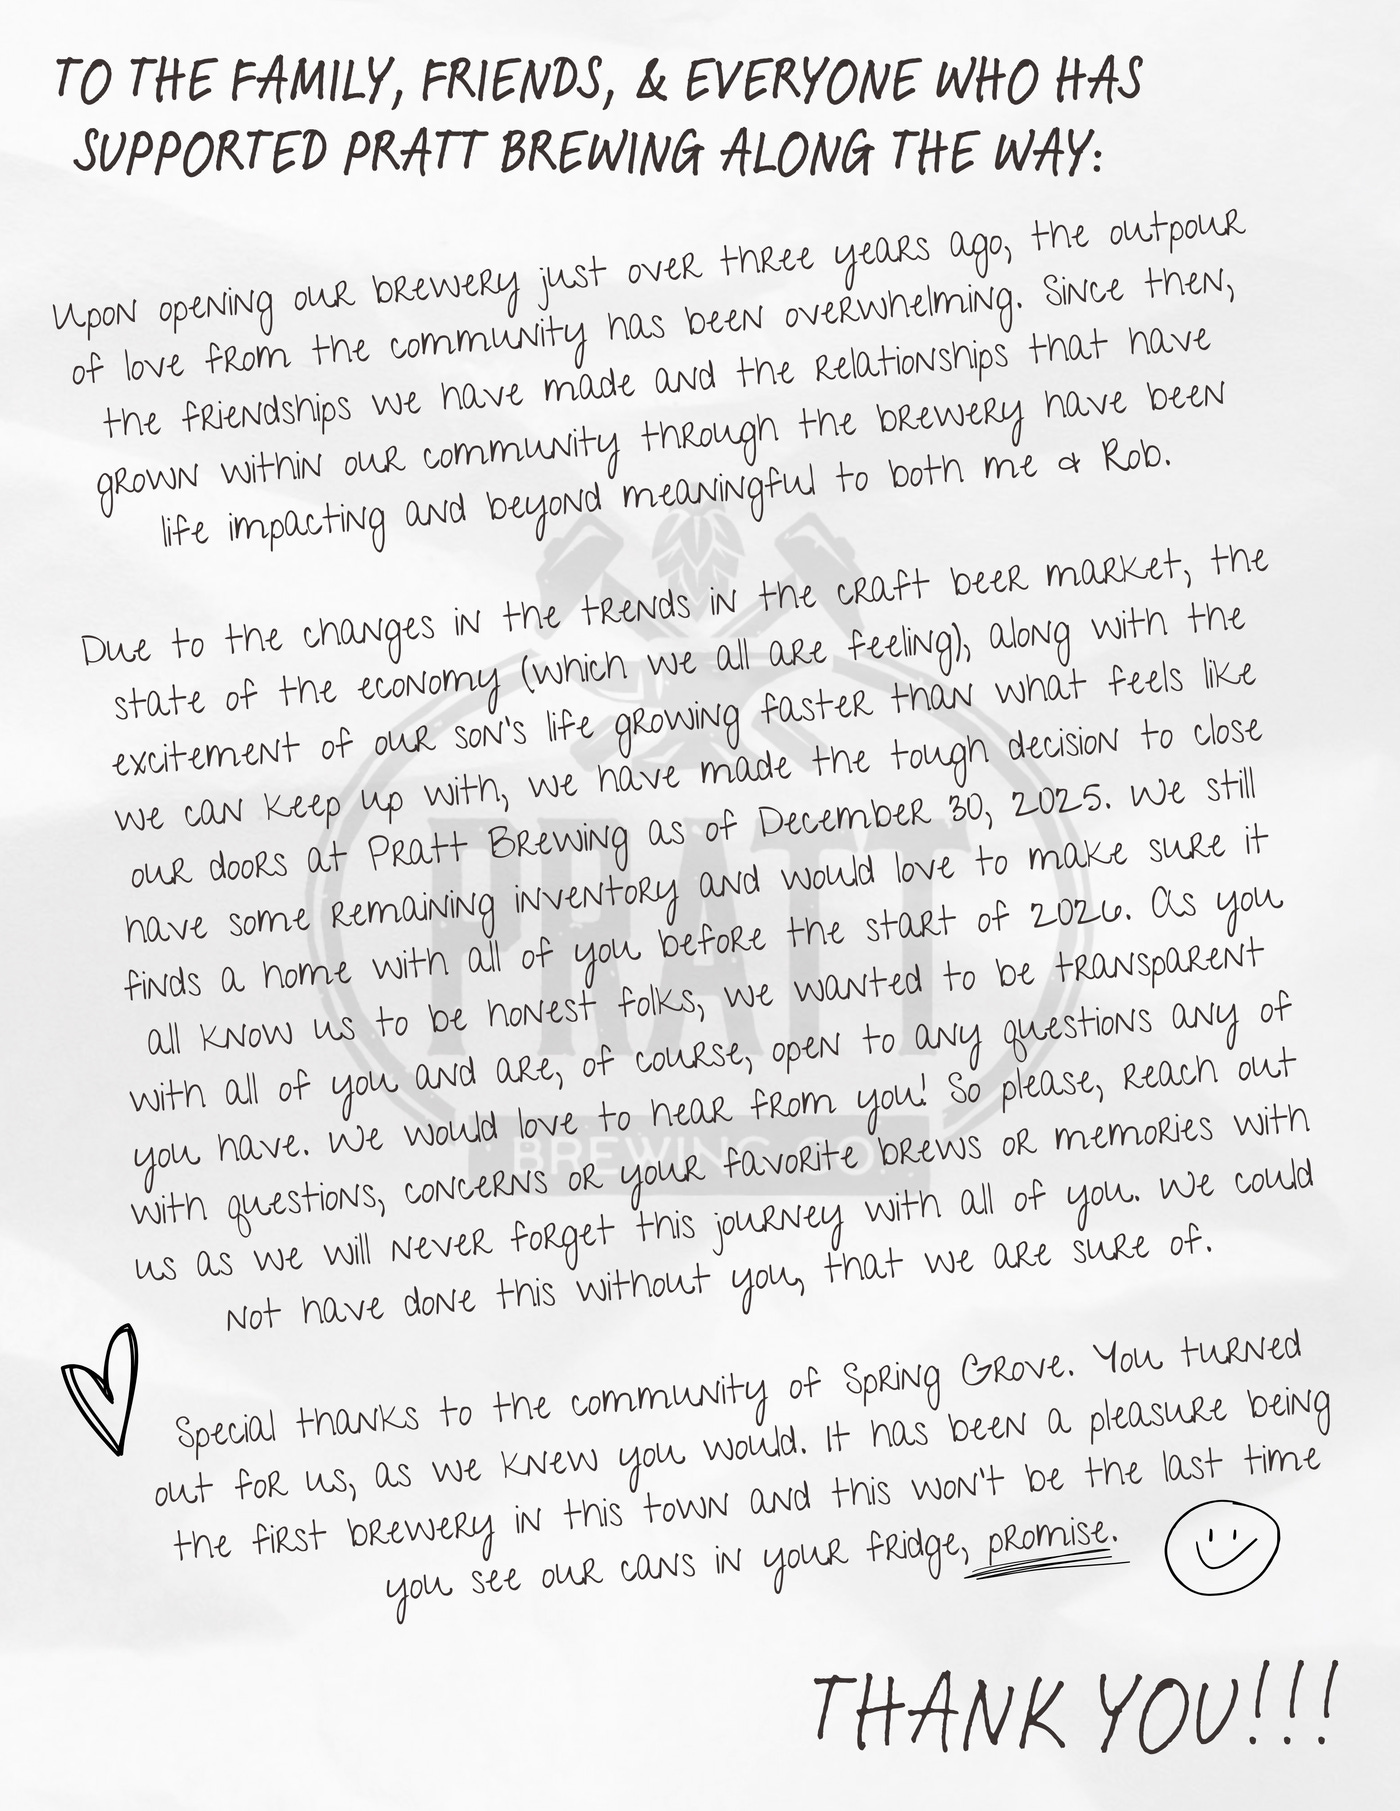 TO THE FAMILY, FRIENDS, & EVERYONE WHO HAS
SUPPORTED PRATT BREWING ALONG THE WAY:
Upon opening our brewery just over three years ago, the outpour
of love from the community has been overwhelming. Since then,
the friendships we have made and the relationships that have
grown within our community through the brewery have been
life impacting and beyond meaningful to both me & Rob.
Due to the changes in the trends in the craft beer market, the
state of the economy (which we all are feeling), along with the
excitement of our son's life growing faster than what feels like
we can keep up with, we have made the tough decision to close
our doors at Pratt Brewing as of December 30, 2025. We still
have some remaining inventory and would love to make sure it
finds a home with all of you before the start of 2026. As you
all know us to be honest folks, we wanted to be transparent
with all of you and are, of course, open to any questions any of
you have. We would love to hear from you! So please, reach out
with questions, concerns or your favorite brews or memories with
us as we will never forget this journey with all of you. We could
not have done this without you, that we are sure of.
Special thanks to the community of Spring Grove. You turned
out for us, as we knew you would. It has been a pleasure being
the first brewery in this town and this won't be the last time
you see our cans in your fridge, promise.
THANK YOU!!!
PRATT
BREWING CO.